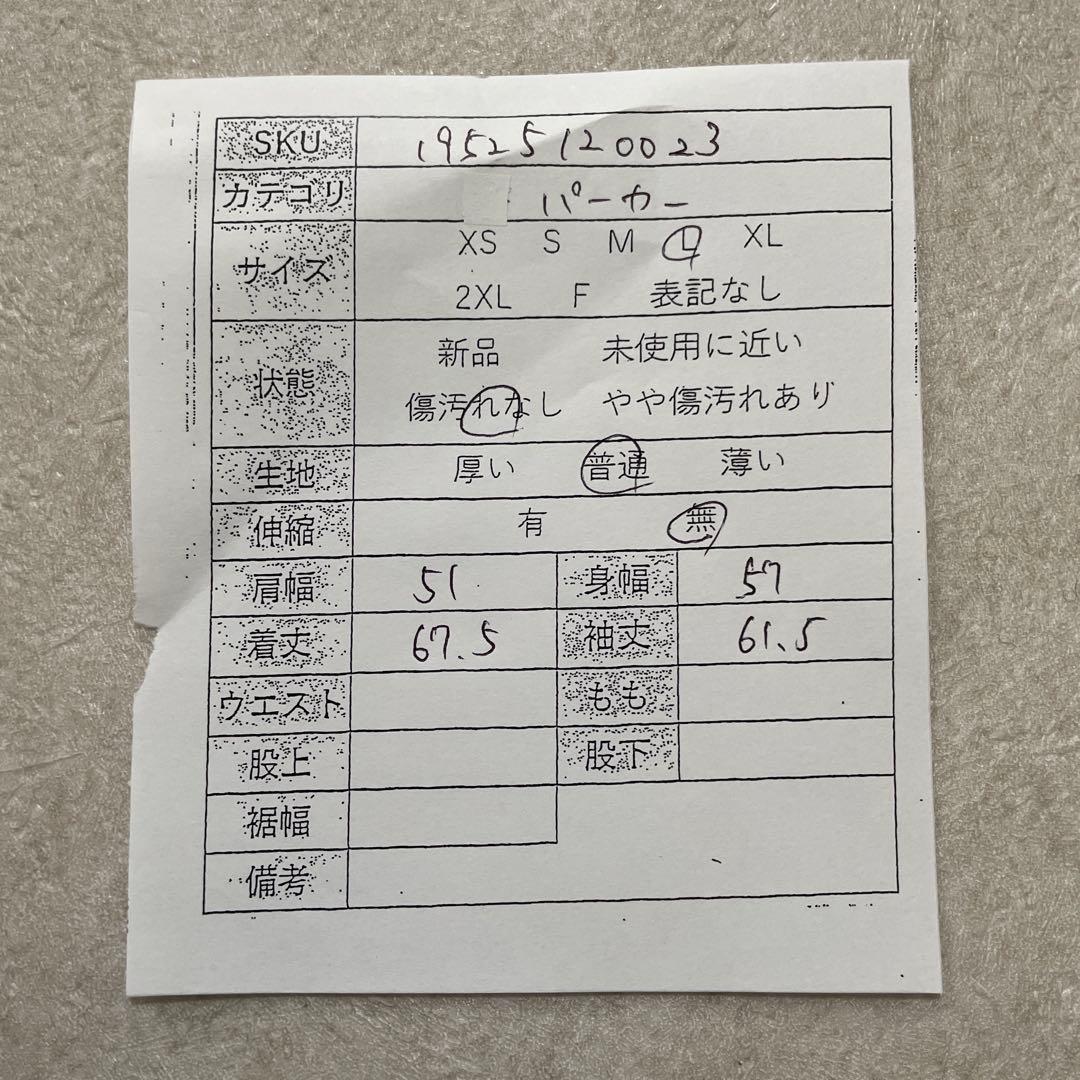 SKU 19525120023
カテゴリ パーカー
サイズ XS S M L XL
2XL F 表記なし
状態 新品 未使用に近い
傷汚れなし やや傷汚れあり
生地 厚い 普通 薄い
伸縮 有 無
肩幅 51 身幅 57
着丈 67.5 袖丈 61.5
ウエスト もも
股上 股下
裾幅
備考